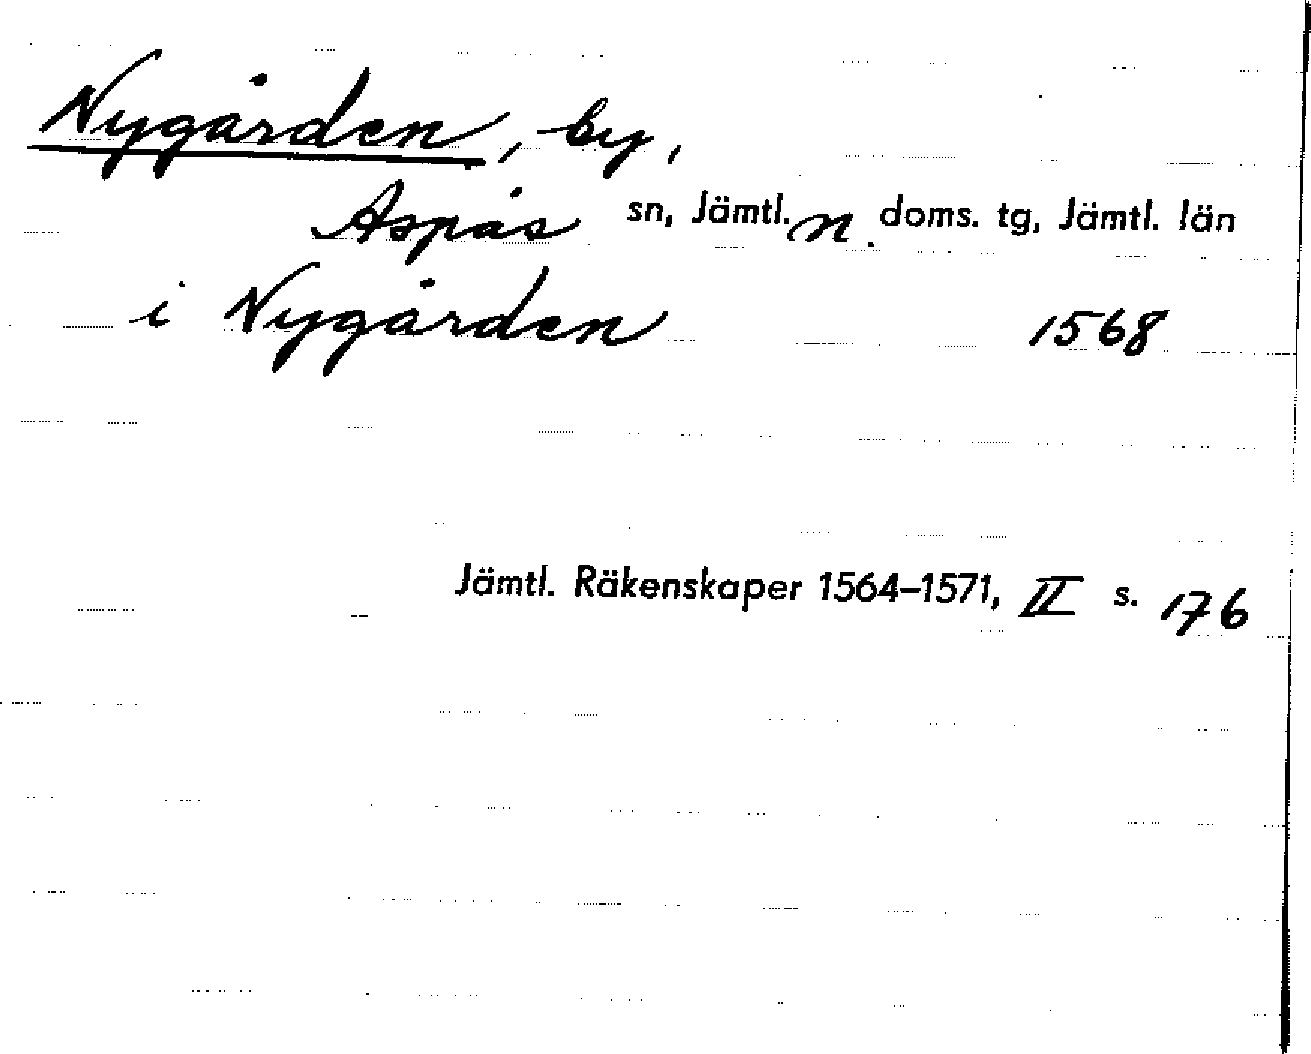 Nygården, by,
Aspås sn, Jämtl. n. doms. tg, Jämtl. län
i Nygården 1568
Jämtl. Räkenskaper 1564–1571, II s. 176